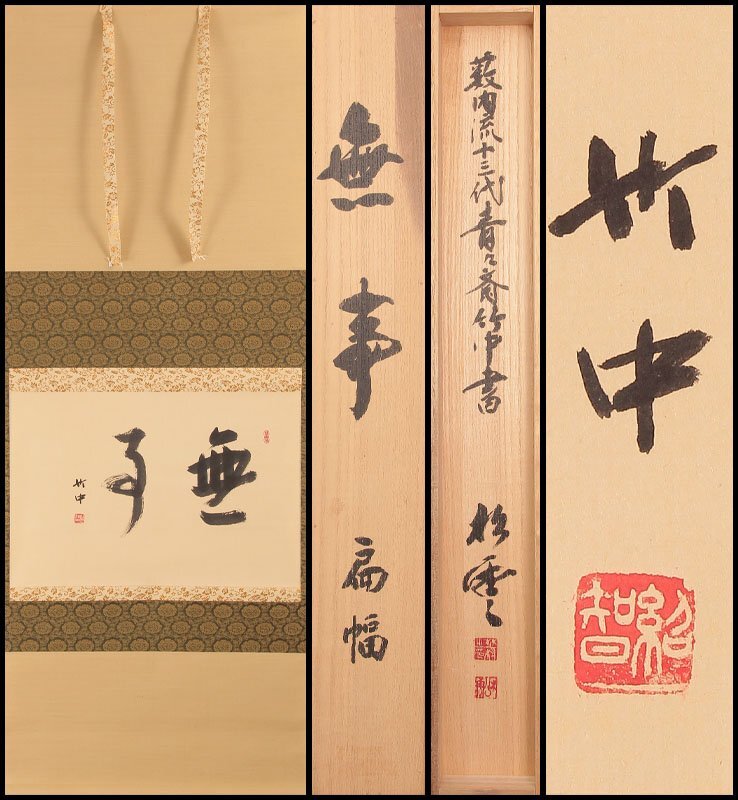 無事
竹中
無事 扁幅
薮内流十三代青々斎竹中書
竹中
紹智